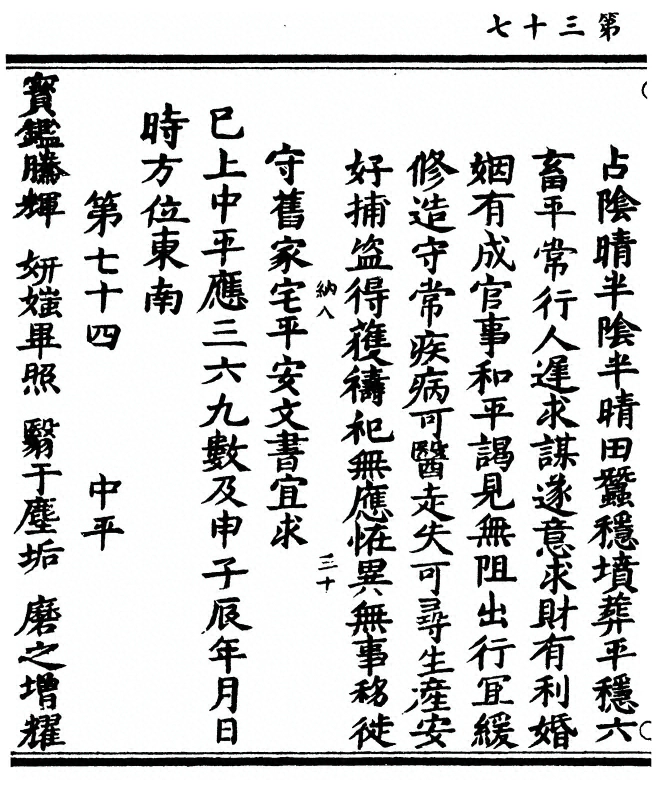 第三十七
占陰晴半陰半晴田蠶穩墳葬平穩六
畜平常行人遲求謀遂意求財有利婚
姻有成官事和平謁見無阻出行宜緩
修造守常疾病可醫走失可尋生產安
好捕盜得獲禱祀無應恠異無事移徙
納八
三十
守舊家宅平安文書宜求
已上中平應三六九數及申子辰年月日
時方位東南
第七十四 中平
寶鑑騰輝 妍媸畢照 翳于塵垢 磨之增耀